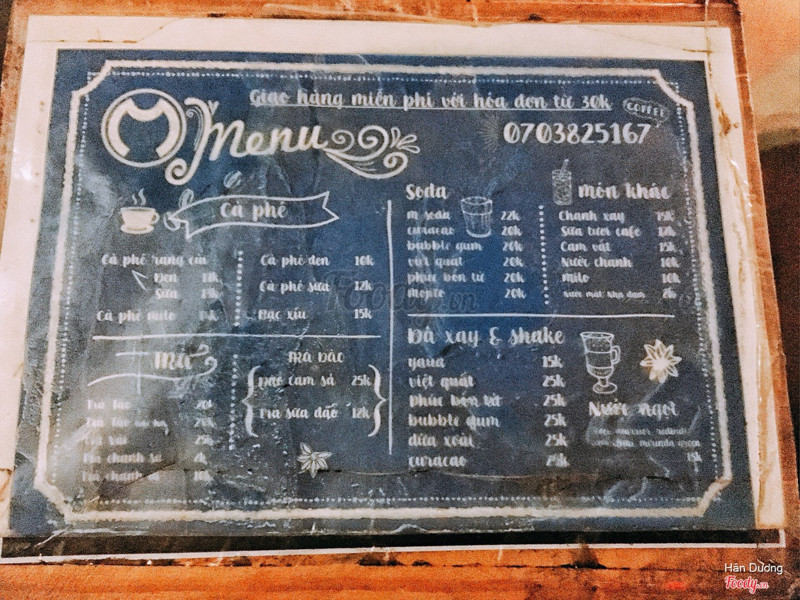 Giao hàng miễn phí với hóa đơn từ 30k
COFFEE
M Menu
0703825167
Cà phê
Cà phê rang củi
Đen
Sữa
Cà phê milo
Cà phê đen 10k
Cà phê sữa 12k
Bạc xỉu 15k
Trà
Trà táo 20k
Trà táo
Trà vải 25k
Trà chanh sả
Trà chanh
Trà đào
Đào cam sả 25k
Trà sữa đào 12k
Soda
m soda 22k
curacao 20k
bubble gum 20k
việt quất 20k
phúc bồn tử 20k
mojito 20k
món khác
Chanh xay 15k
Sữa tươi cafe
Cam vắt 15k
Nước chanh 10k
milo 10k
Nước mát nha đam
Đá xay & shake
yaua 15k
việt quất 25k
phúc bồn tử 25k
bubble gum 25k
dừa xoài 25k
curacao 25k
Nước ngọt
15k
Foody.vn
Hân Dương
Foody.vn